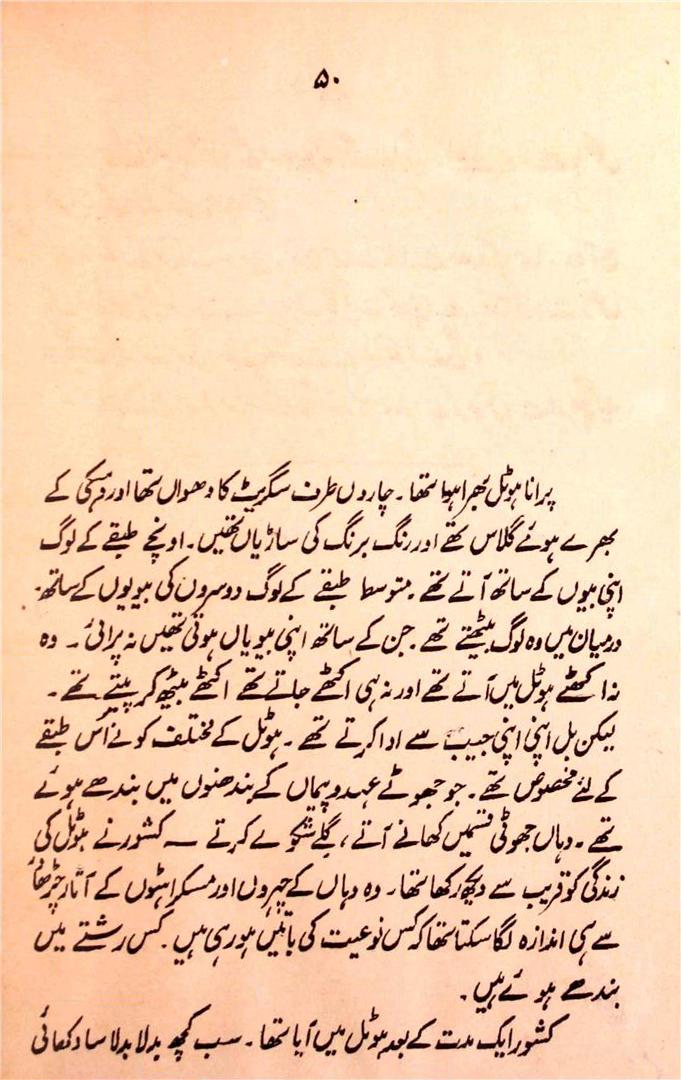 ۵۰
پرانا ہوٹل بھرا ہوا تھا۔ چاروں طرف سگریٹ کا دھواں تھا اور وہسکی کے
بھرے ہوئے گلاس تھے اور رنگ برنگ کی ساڑیاں تھیں۔ اونچے طبقے کے لوگ
اپنی بیویوں کے ساتھ آتے تھے۔ متوسط طبقے کے لوگ دوسروں کی بیویوں کے ساتھ۔
درمیان میں وہ لوگ بیٹھتے تھے۔ جن کے ساتھ اپنی بیویاں ہوتی تھیں نہ پرائی۔ وہ
نہ اکٹھے ہوٹل میں آتے تھے اور نہ ہی اکٹھے جاتے تھے اکٹھے بیٹھ کر پیتے تھے۔
لیکن بل اپنی اپنی جیب سے ادا کرتے تھے۔ ہوٹل کے مختلف کونے اُس طبقے
کے لئے مخصوص تھے۔ جو جھوٹے عہد و پیماں کے بندھنوں میں بندھے ہوئے
تھے۔ وہاں جھوٹی قسمیں کھانے آتے، گلے شکوے کرتے — کشور نے ہوٹل کی
زندگی کو قریب سے دیکھ رکھا تھا۔ وہ وہاں کے چہروں اور مسکراہٹوں کے آثار چڑھاؤ
سے ہی اندازہ لگا سکتا تھا کہ کس نوعیت کی باتیں ہو رہی ہیں۔ کس رشتے میں
بندھے ہوئے ہیں۔
کشور ایک مدت کے بعد ہوٹل میں آیا تھا۔ سب کچھ بدلا بدلا سا دکھائی